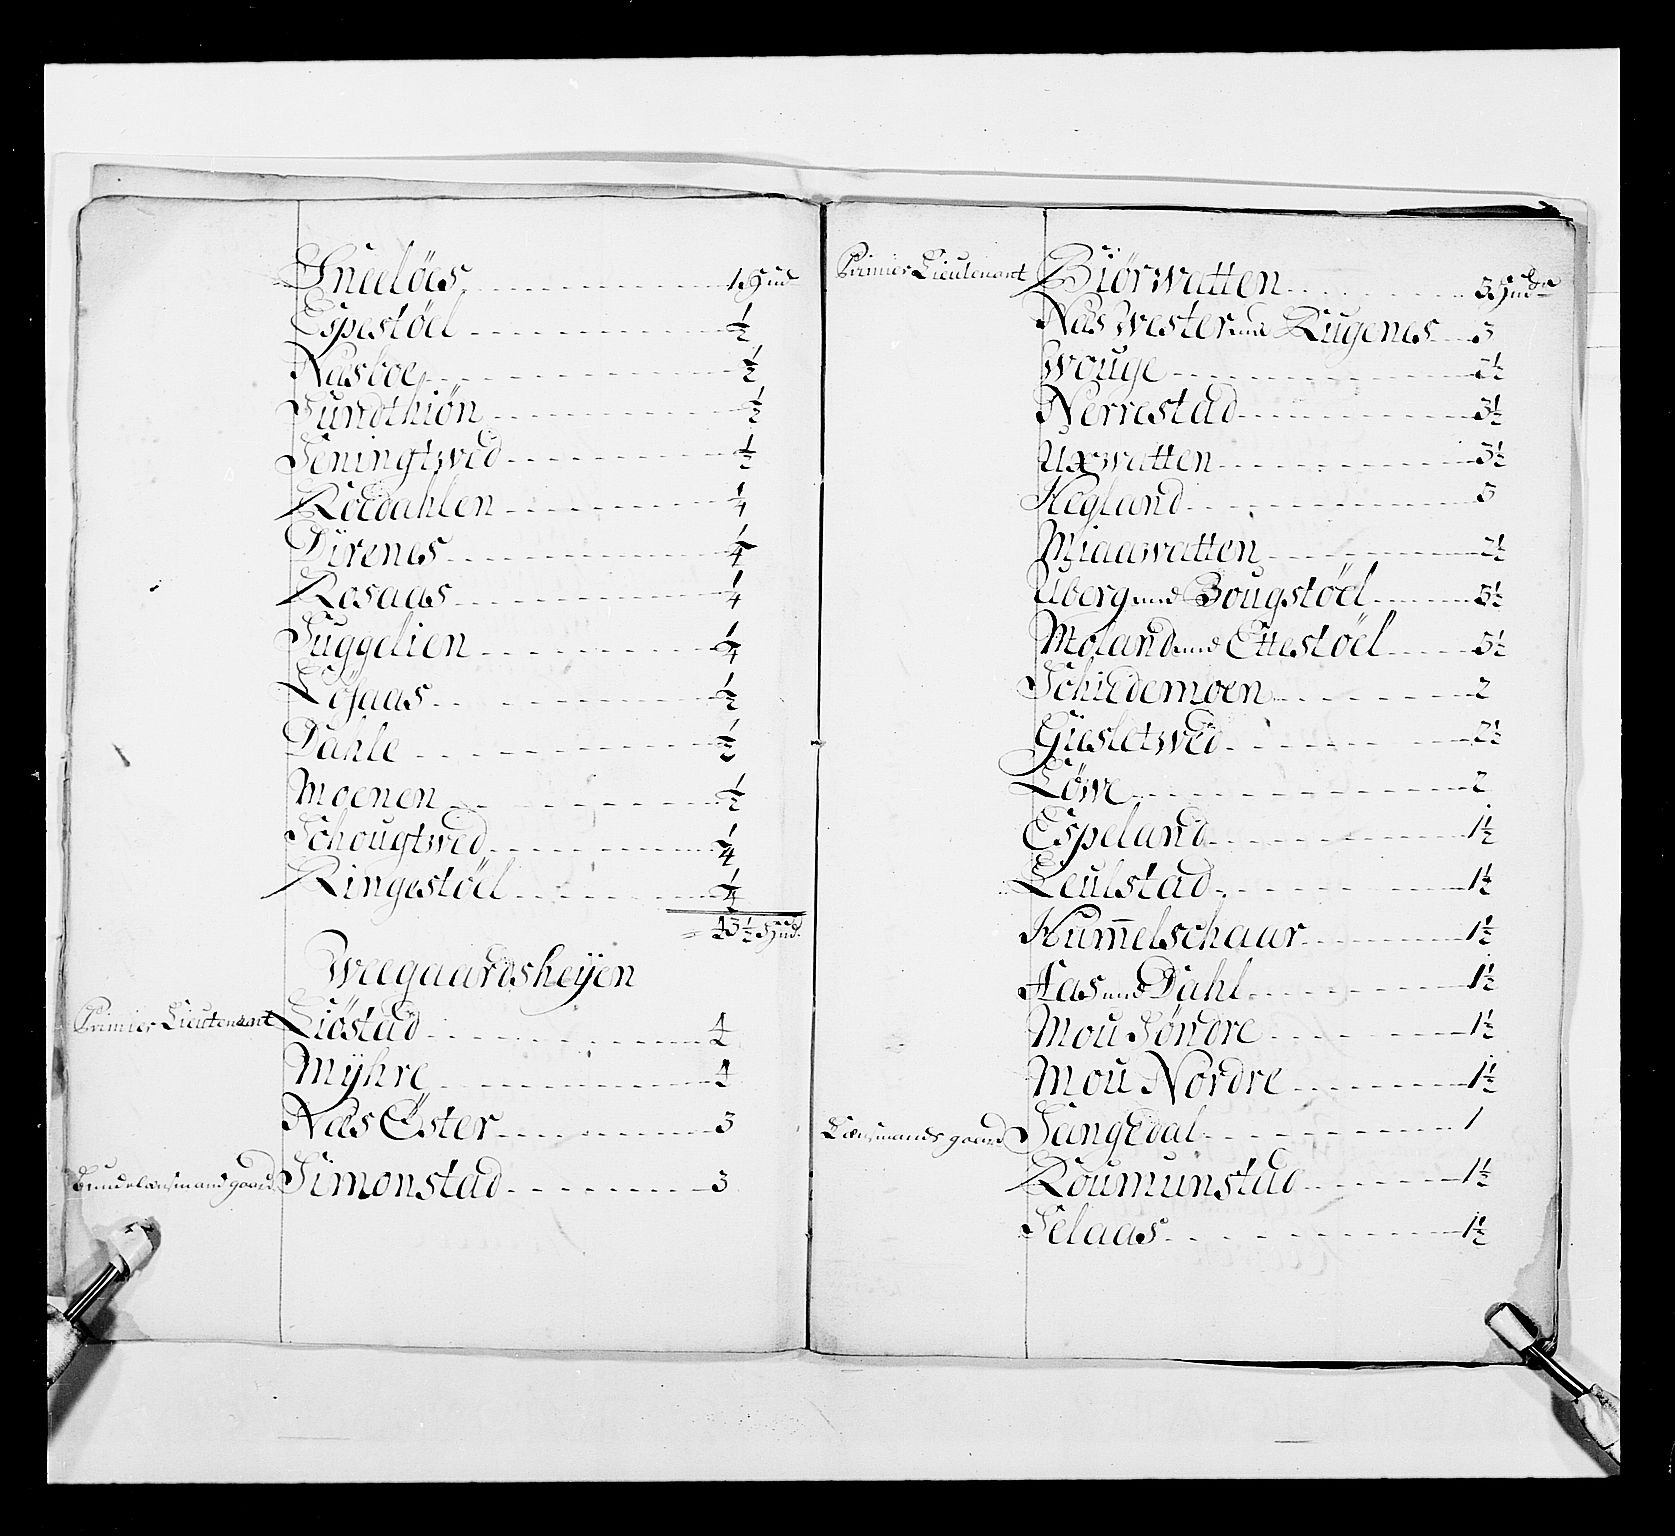 Sneelöes 1 Hud
Espestöel ½
Nasboe ½
Sundthiön ½
Seningtwed ½
Roedahlen ¼
Dÿrenes ¼
Rosaas ¼
Suggelien ¼
Löfaas ½
Dahle ½
Moenen ½
Schougtwed ¼
Ringestöel ¼
= 43½ Hud.
Weegaardsheÿen
Primier Lieutenant Liöstad 4
Mÿhre 4
Næs Öster 3
Simonstad 3
Primier Lieutenant Biörwatten 3 Hud
Næs Wester und Rugenes 3
Wouge 2½
Nerrestad 3½
Uxwatten 3½
Heglund 3
Miaawatten 2½
Uberg und Bougstöel 3½
Moland und Ettestöel 3½
Schiedemoen 2
Gieslctwed 2½
Löwe 2
Espeland 1½
Leulstad 1½
Hum̅elschaur 1½
Aas und Dahl 1½
Mou Söndre 1½
Mou Nordre 1½
Lænsmands gaard Sangedal 1
Roumunstad 1½
Selaas 1½